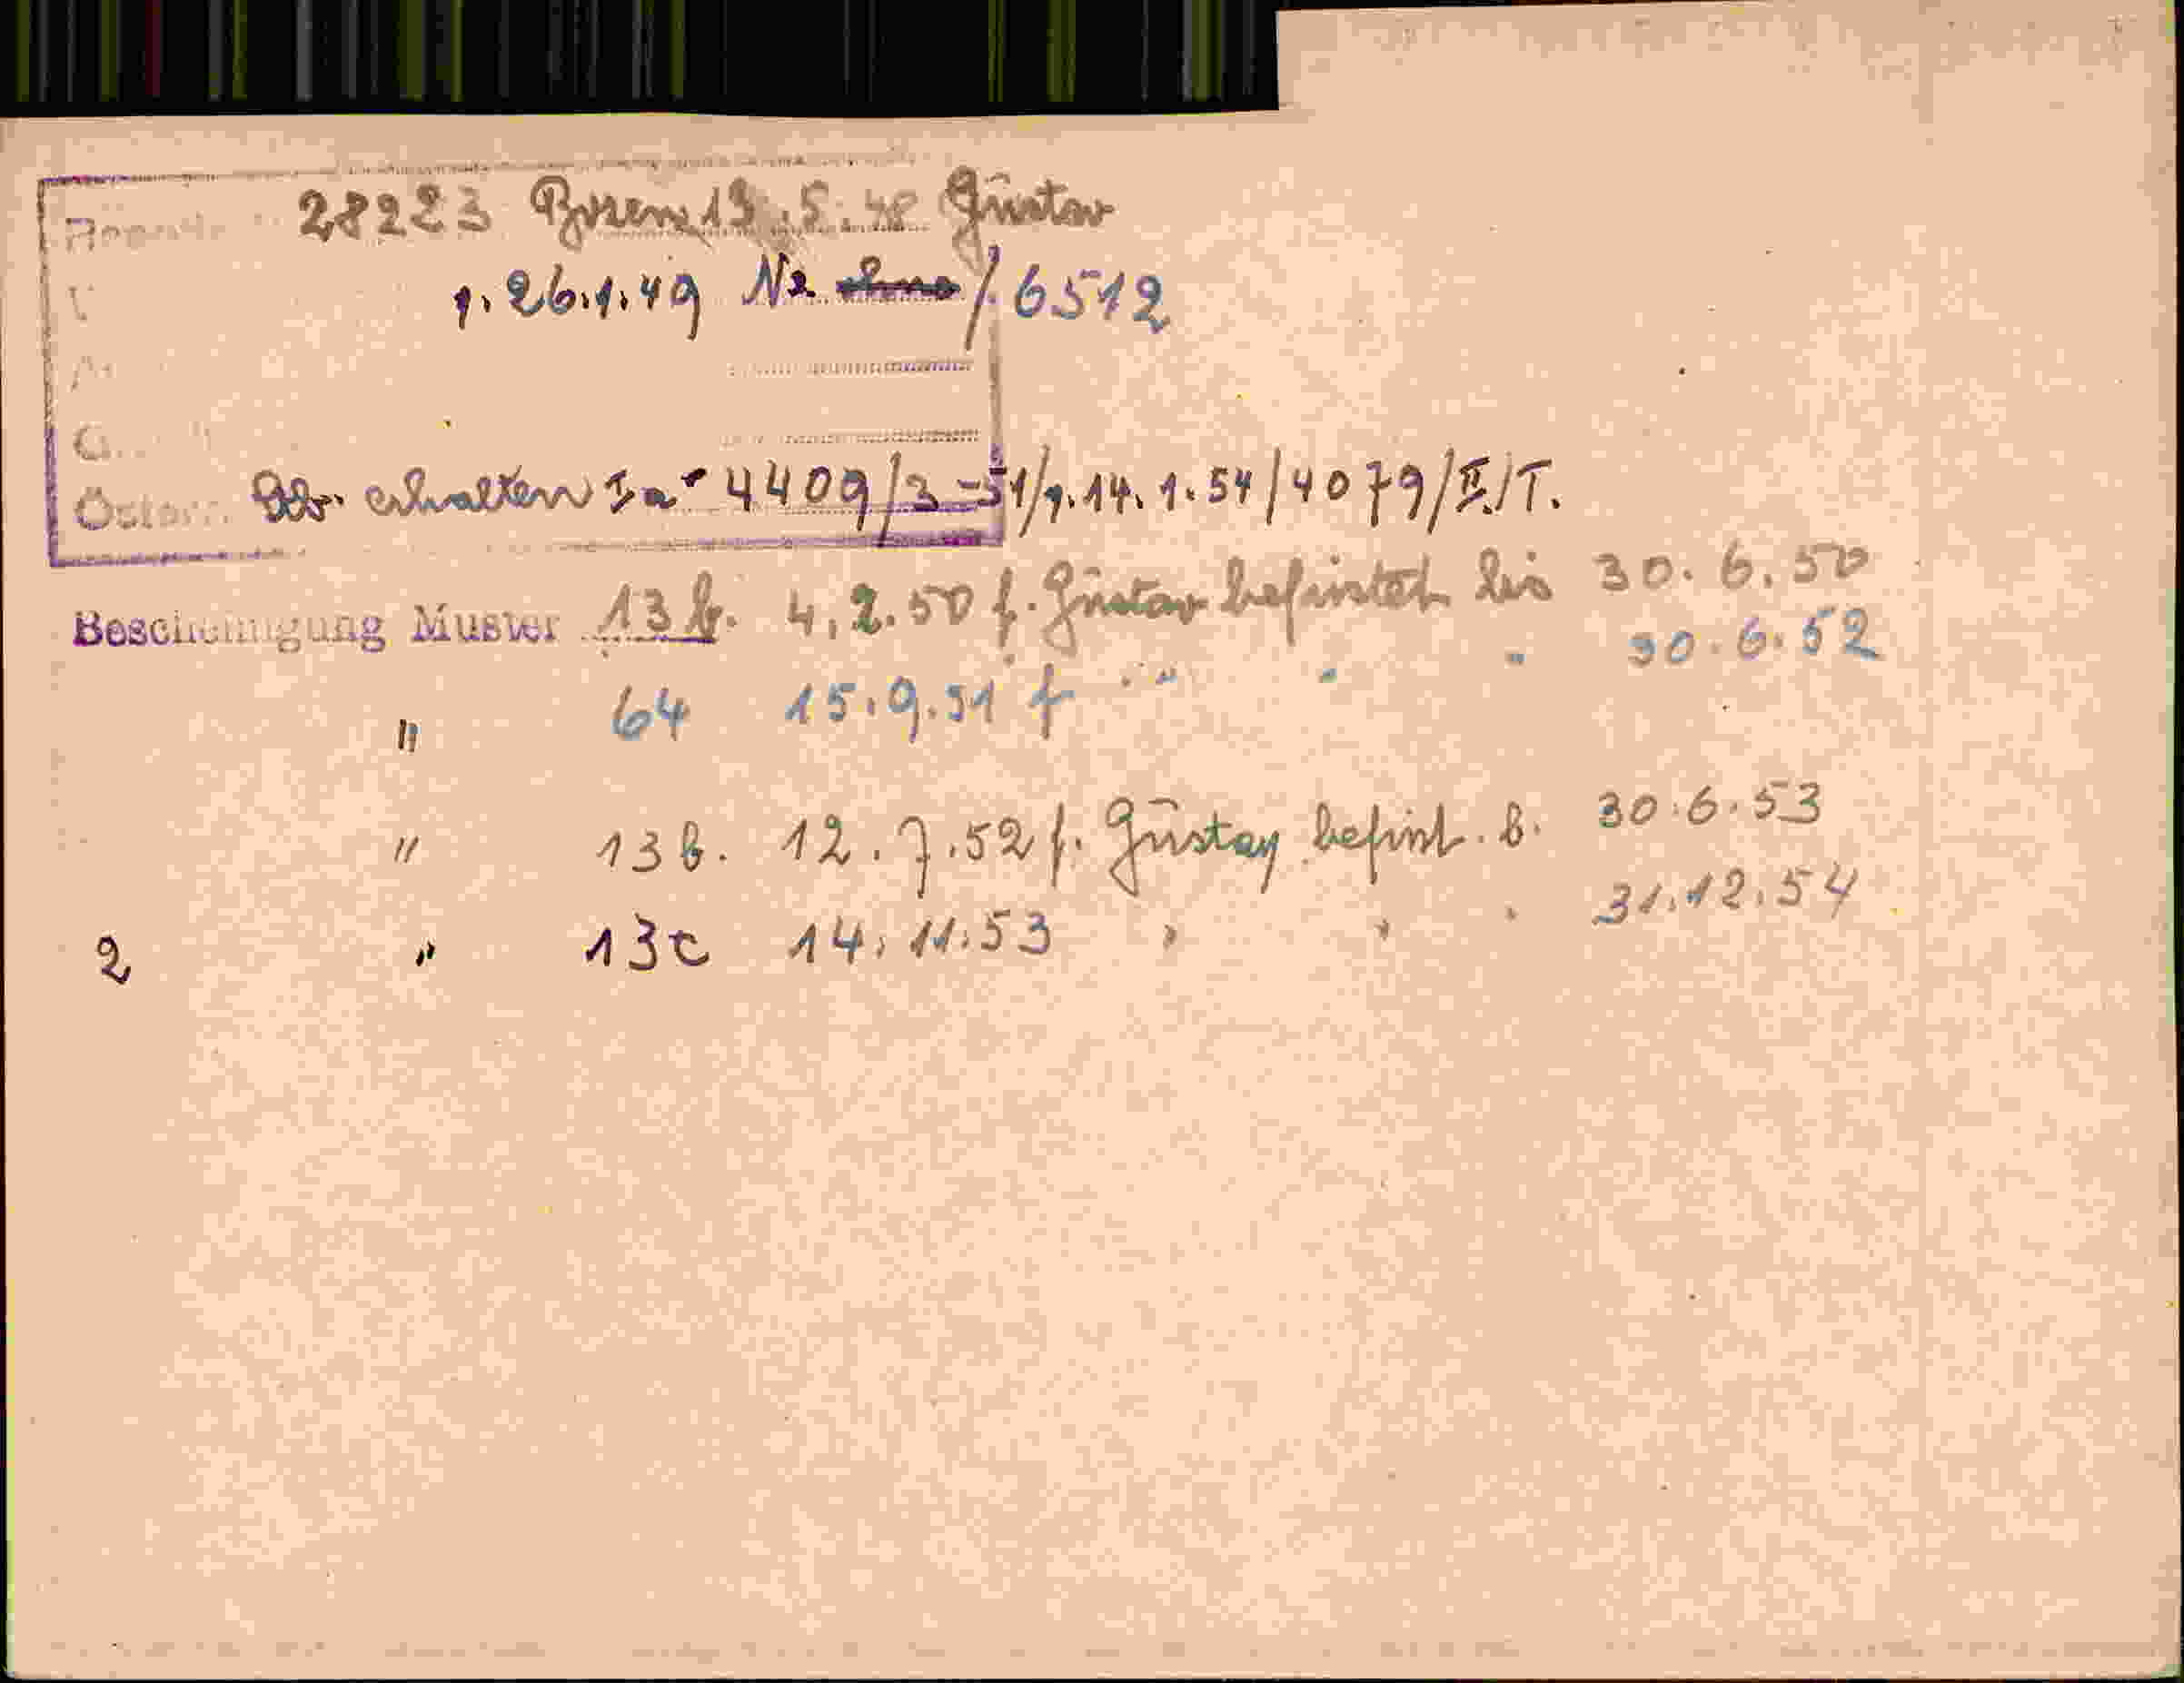 28223 Bozen 13.5.48 Gustav
v. 26.1.49 Nr ohne / 6512
erhalten Za 4409/3-51/v. 14.1.54/4079/II/T.
Bescheinigung Muster 13 b. 4.2.50 f. Gustav befristet bis 30.6.50
" 64 15.9.51 f " " " 30.6.52
" 13 b. 12.7.52 f. Gustav befrist. b. 30.6.53
2 " 13c 14.11.53 " " " 31.12.54